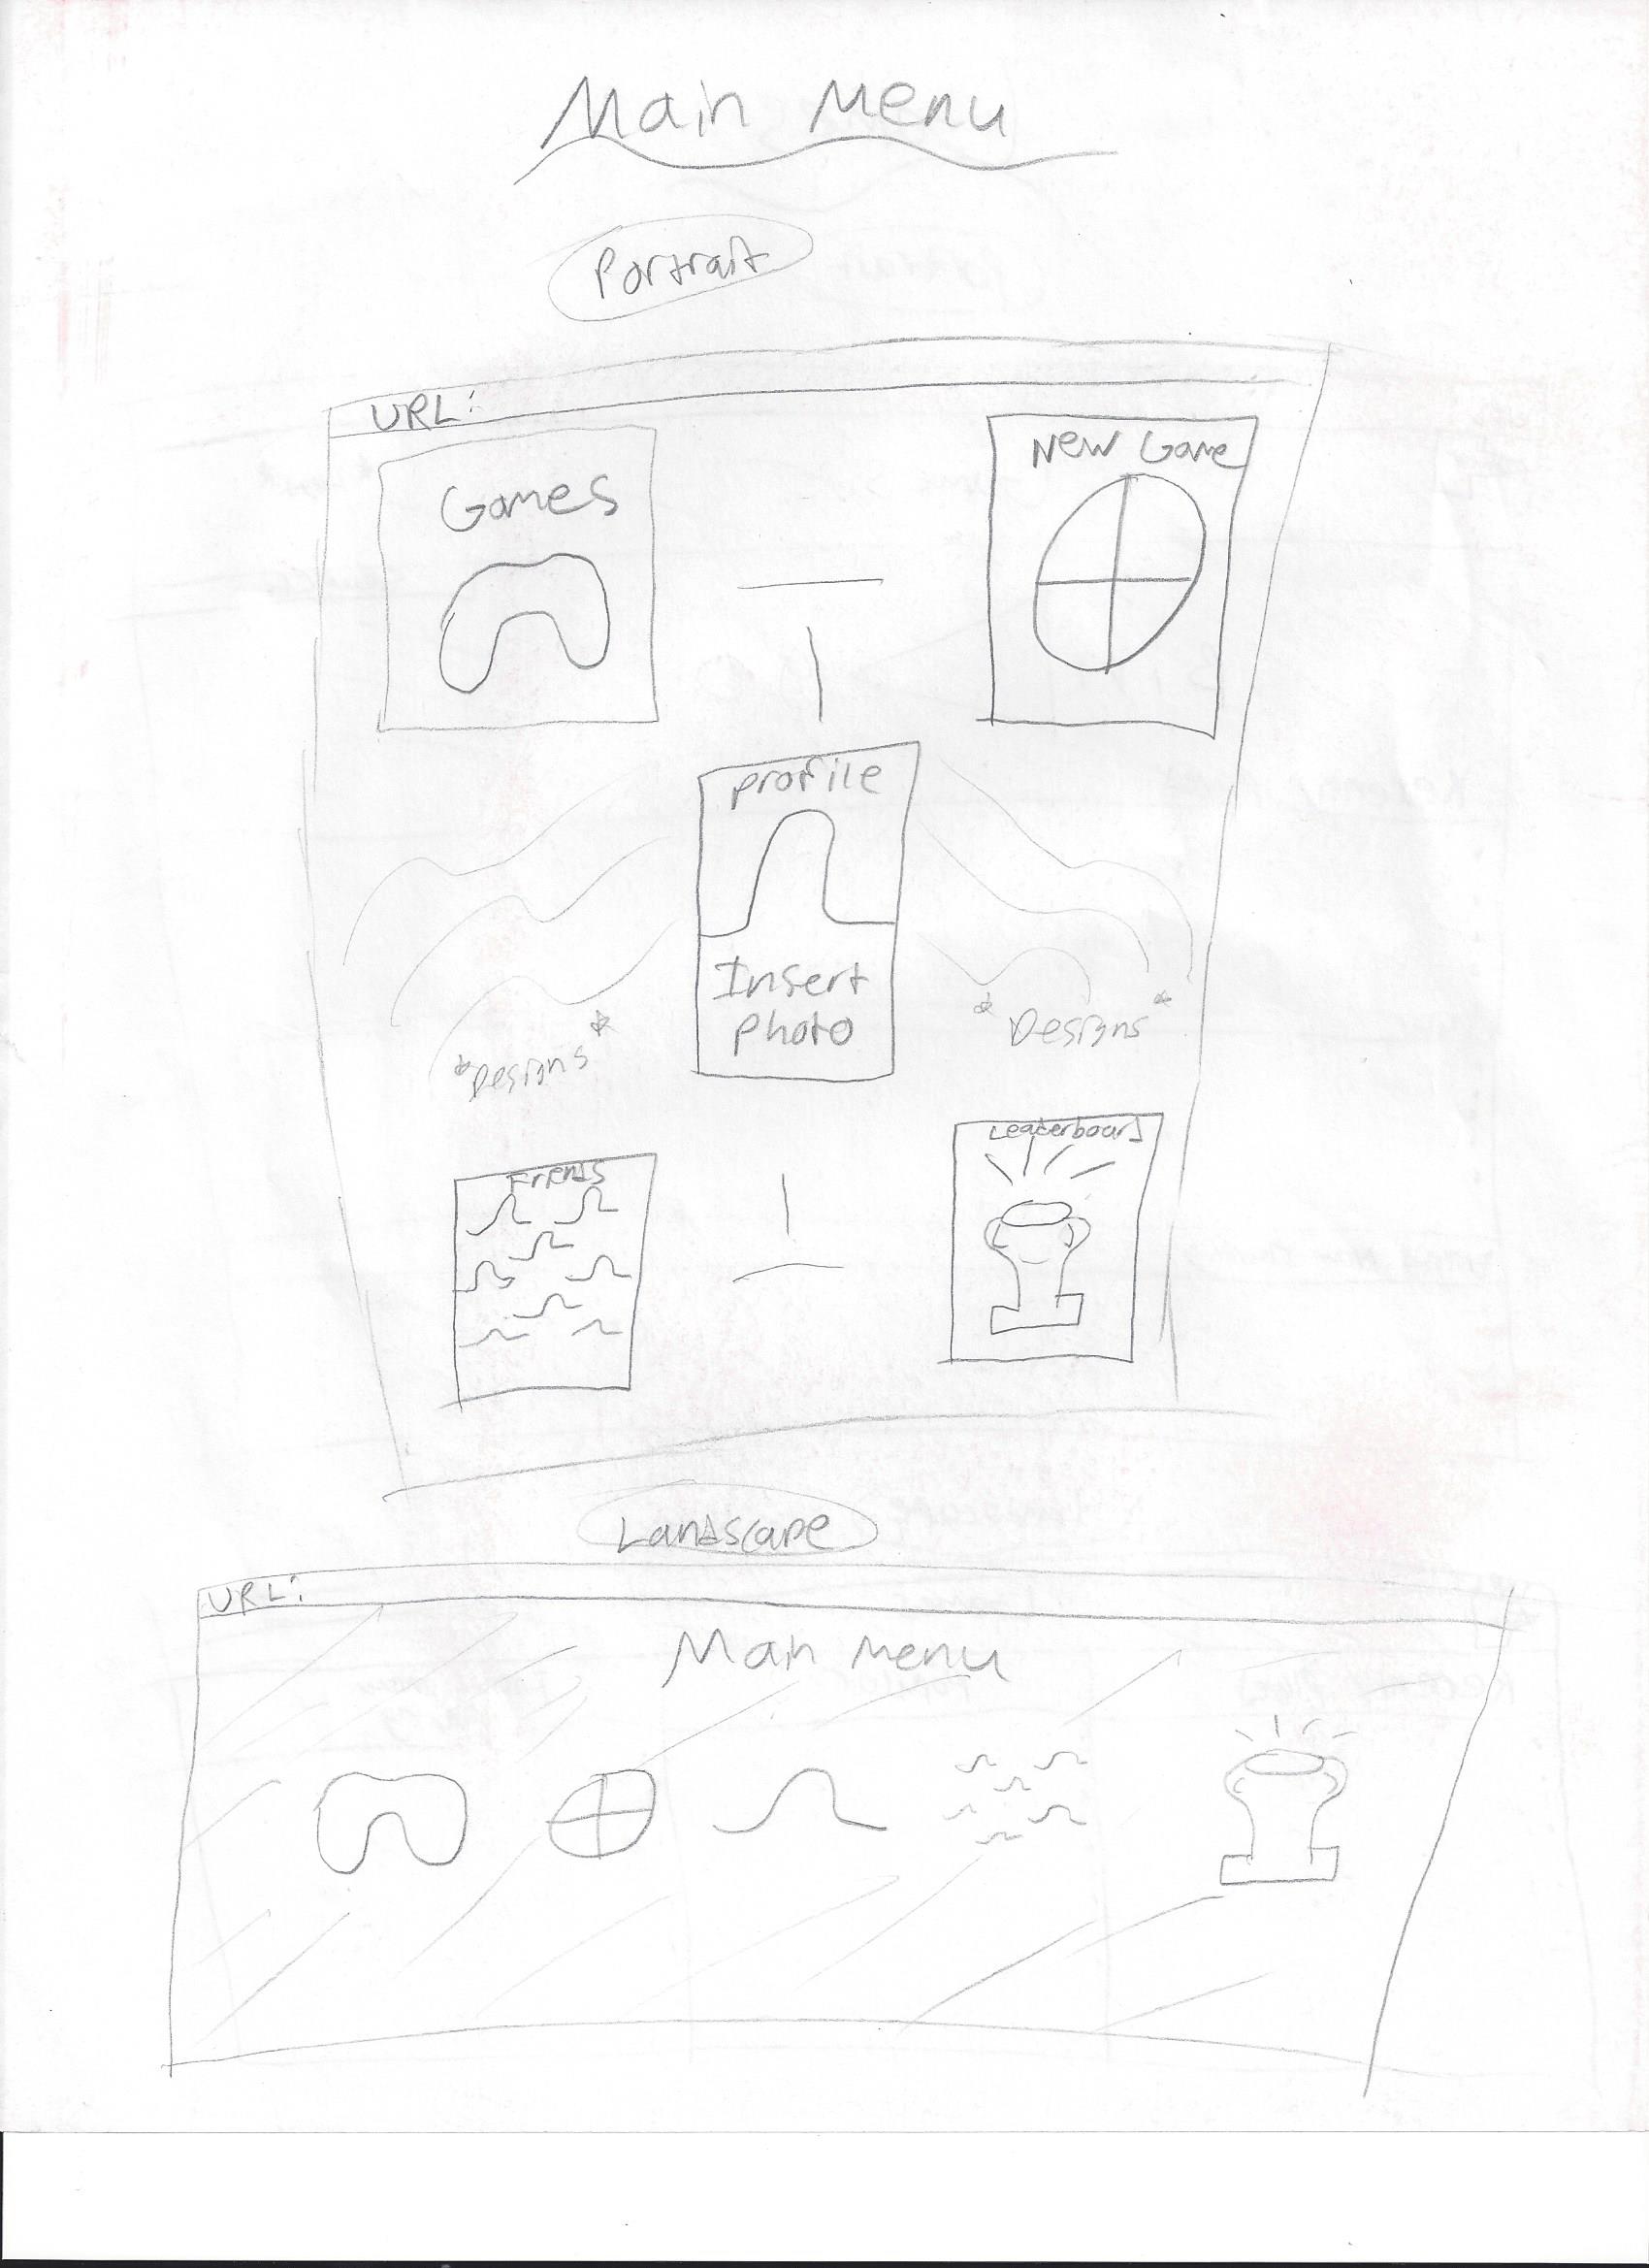 Main Menu
Portrait
URL:
Games
New Game
Profile
Insert
Photo
*Designs*
*Designs*
Friends
Leaderboard
Landscape
URL:
Main Menu